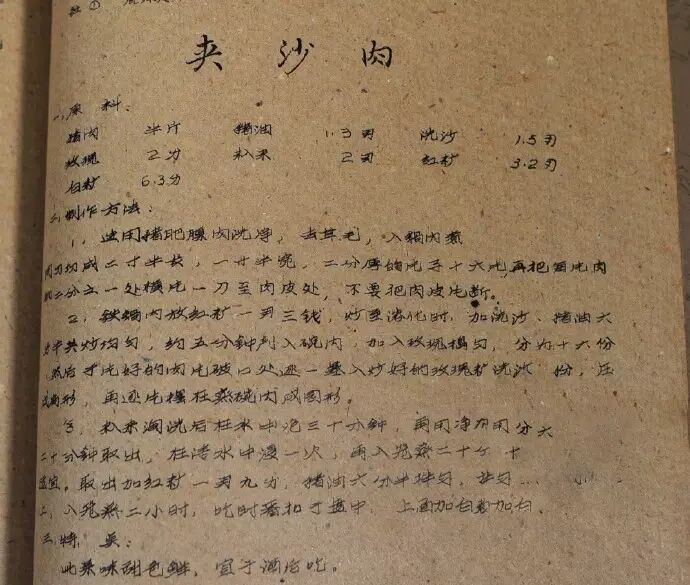 夹沙肉
一、原料：
猪肉 半斤 猪油 1.3刃 洗沙 1.5刃
玫瑰 2分 籼米 2刃 红籹 3.2刃
白籹 6.3分
二、制作方法：
1、选用猪肥膘肉洗净，去耳毛，入锅内煮
切成二寸半长，一寸半宽，二分厚的片子十六片再把每片肉
二分之一处横片一刀至肉皮处，不要把肉皮片断。
2、铁锅内放红籹一刃三钱，炒至溶化时，加洗沙、猪油六
半共炒均匀，约五分钟到入碗内，加入玫瑰搅匀，分为十六份
然后于片好的肉片破口处逐一塞入炒好的玫瑰籹洗沙 份，压
成扁形，再逐片摆在蒸碗内成圆形。
3、籼米淘洗后在水中泡三十分钟，再用净布用 大
二十分钟取出，在清水中浸一次，再入笼蒸二十分
取出加红籹一刃九分，猪油六分半拌匀，
上，入笼蒸二小时，吃时番扣于盘中，上面加白籹
三、特 点：
此菜味甜色鲜，宜于酒后吃。